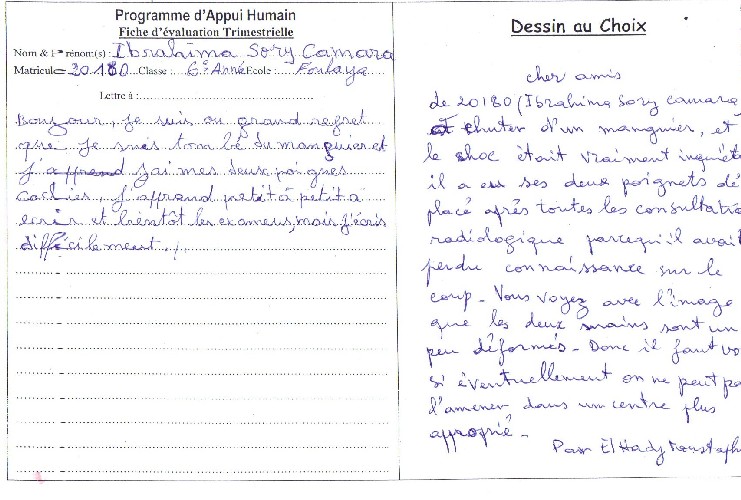 Programme d'Appui Humain
Fiche d'évaluation Trimestrielle
Nom & Prénom(s) : Ibrahima Sory Camara
Matricule 20180 Classe : 6e Année Ecole : Foulaya
Lettre à :
Bonjour, je suis au grand regret
que je suis tombé du manguier et
j'apprend j'ai mes deux poignes
j'apprend petit à petit a
et bientôt les examens, mais j'écris
difficilement ./
Dessin au Choix
cher amis
de 20180 (Ibrahima Sory camara
chuter d'un manguier, et
le choc était vraiment inquiét
il a eu ses deux poignets dé
placé après toutes les consultatio
radiologique parcequ'il avait
perdu connaissance sur le
coup - Vous voyez avec l'image
que les deux mains sont un
peu déformés - Donc il faut vo
si éventuellement on ne peut pa
l'amener dans un centre plus
approprié -
Par ElHadj Moustaph